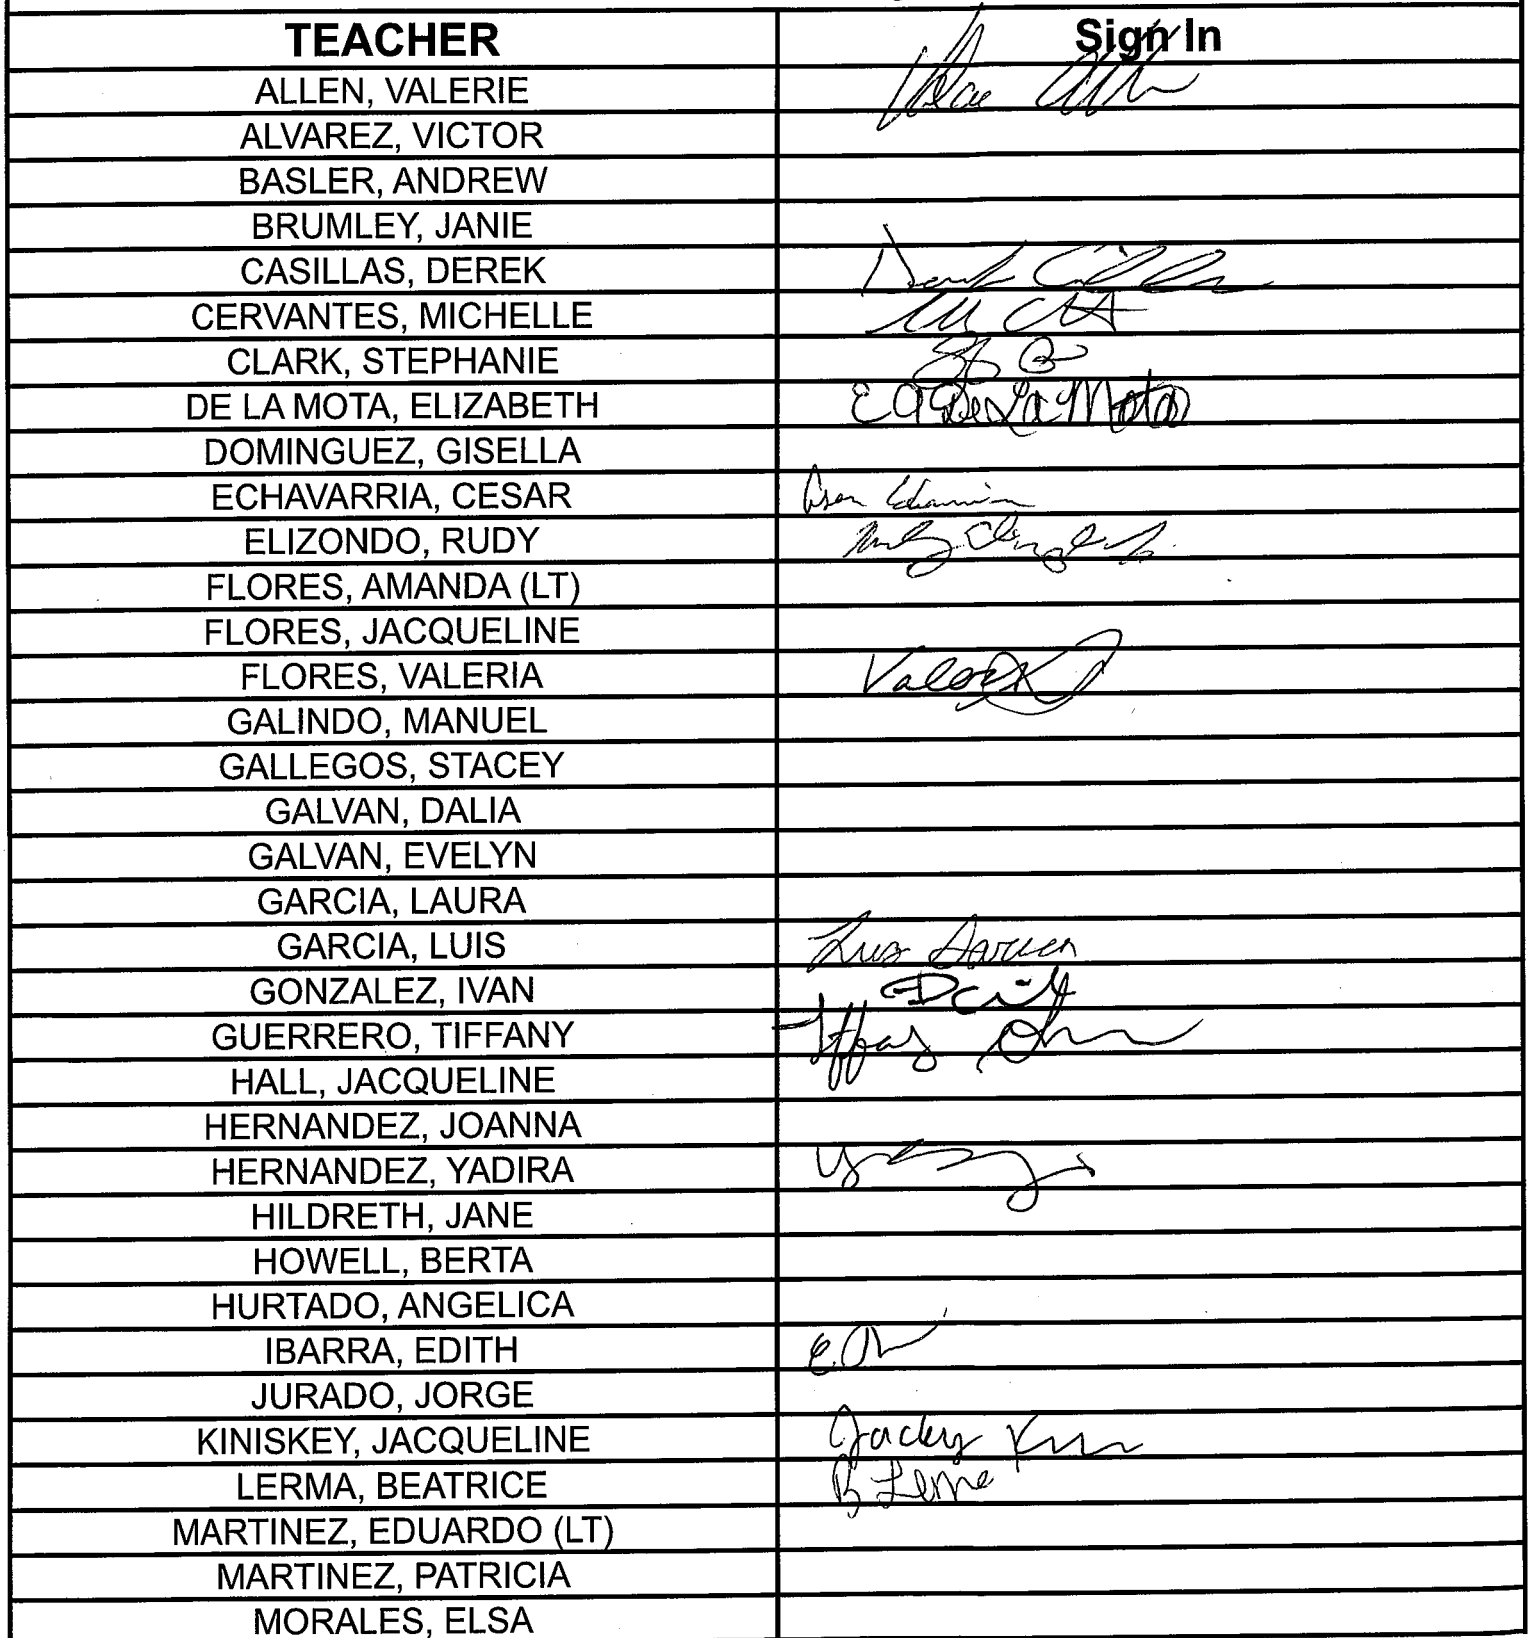 TEACHER Sign In
ALLEN, VALERIE
ALVAREZ, VICTOR
BASLER, ANDREW
BRUMLEY, JANIE
CASILLAS, DEREK
CERVANTES, MICHELLE
CLARK, STEPHANIE
DE LA MOTA, ELIZABETH E A De La Mota
DOMINGUEZ, GISELLA
ECHAVARRIA, CESAR
ELIZONDO, RUDY
FLORES, AMANDA (LT)
FLORES, JACQUELINE
FLORES, VALERIA
GALINDO, MANUEL
GALLEGOS, STACEY
GALVAN, DALIA
GALVAN, EVELYN
GARCIA, LAURA
GARCIA, LUIS
GONZALEZ, IVAN
GUERRERO, TIFFANY
HALL, JACQUELINE
HERNANDEZ, JOANNA
HERNANDEZ, YADIRA
HILDRETH, JANE
HOWELL, BERTA
HURTADO, ANGELICA
IBARRA, EDITH
JURADO, JORGE
KINISKEY, JACQUELINE Jacky
LERMA, BEATRICE B Lerma
MARTINEZ, EDUARDO (LT)
MARTINEZ, PATRICIA
MORALES, ELSA